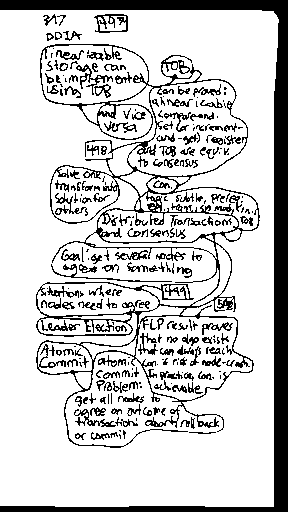 317 497
DDIA
linearizable
storage can
be implemented
using TOB
TOB
and Vice
Versa
can be proved:
a linearizable
compare-and-
set (or increment-
and-get) register
and TOB are equiv.
to consensus
498
Solve one,
transform into
solution for
others
Con.
topic subtle, prereq.
Distributed Transactions
and Consensus
Goal: get several nodes to
agree on something
Situations where
nodes need to agree
499
Leader Election
Atomic
Commit
FLP result proves
that no algo exists
that can always reach
con. if risk of node-crash.
In practice, con. is
achievable
atomic
Commit
Problem:
get all nodes to
agree on outcome of
transaction: abort/rollback
or commit